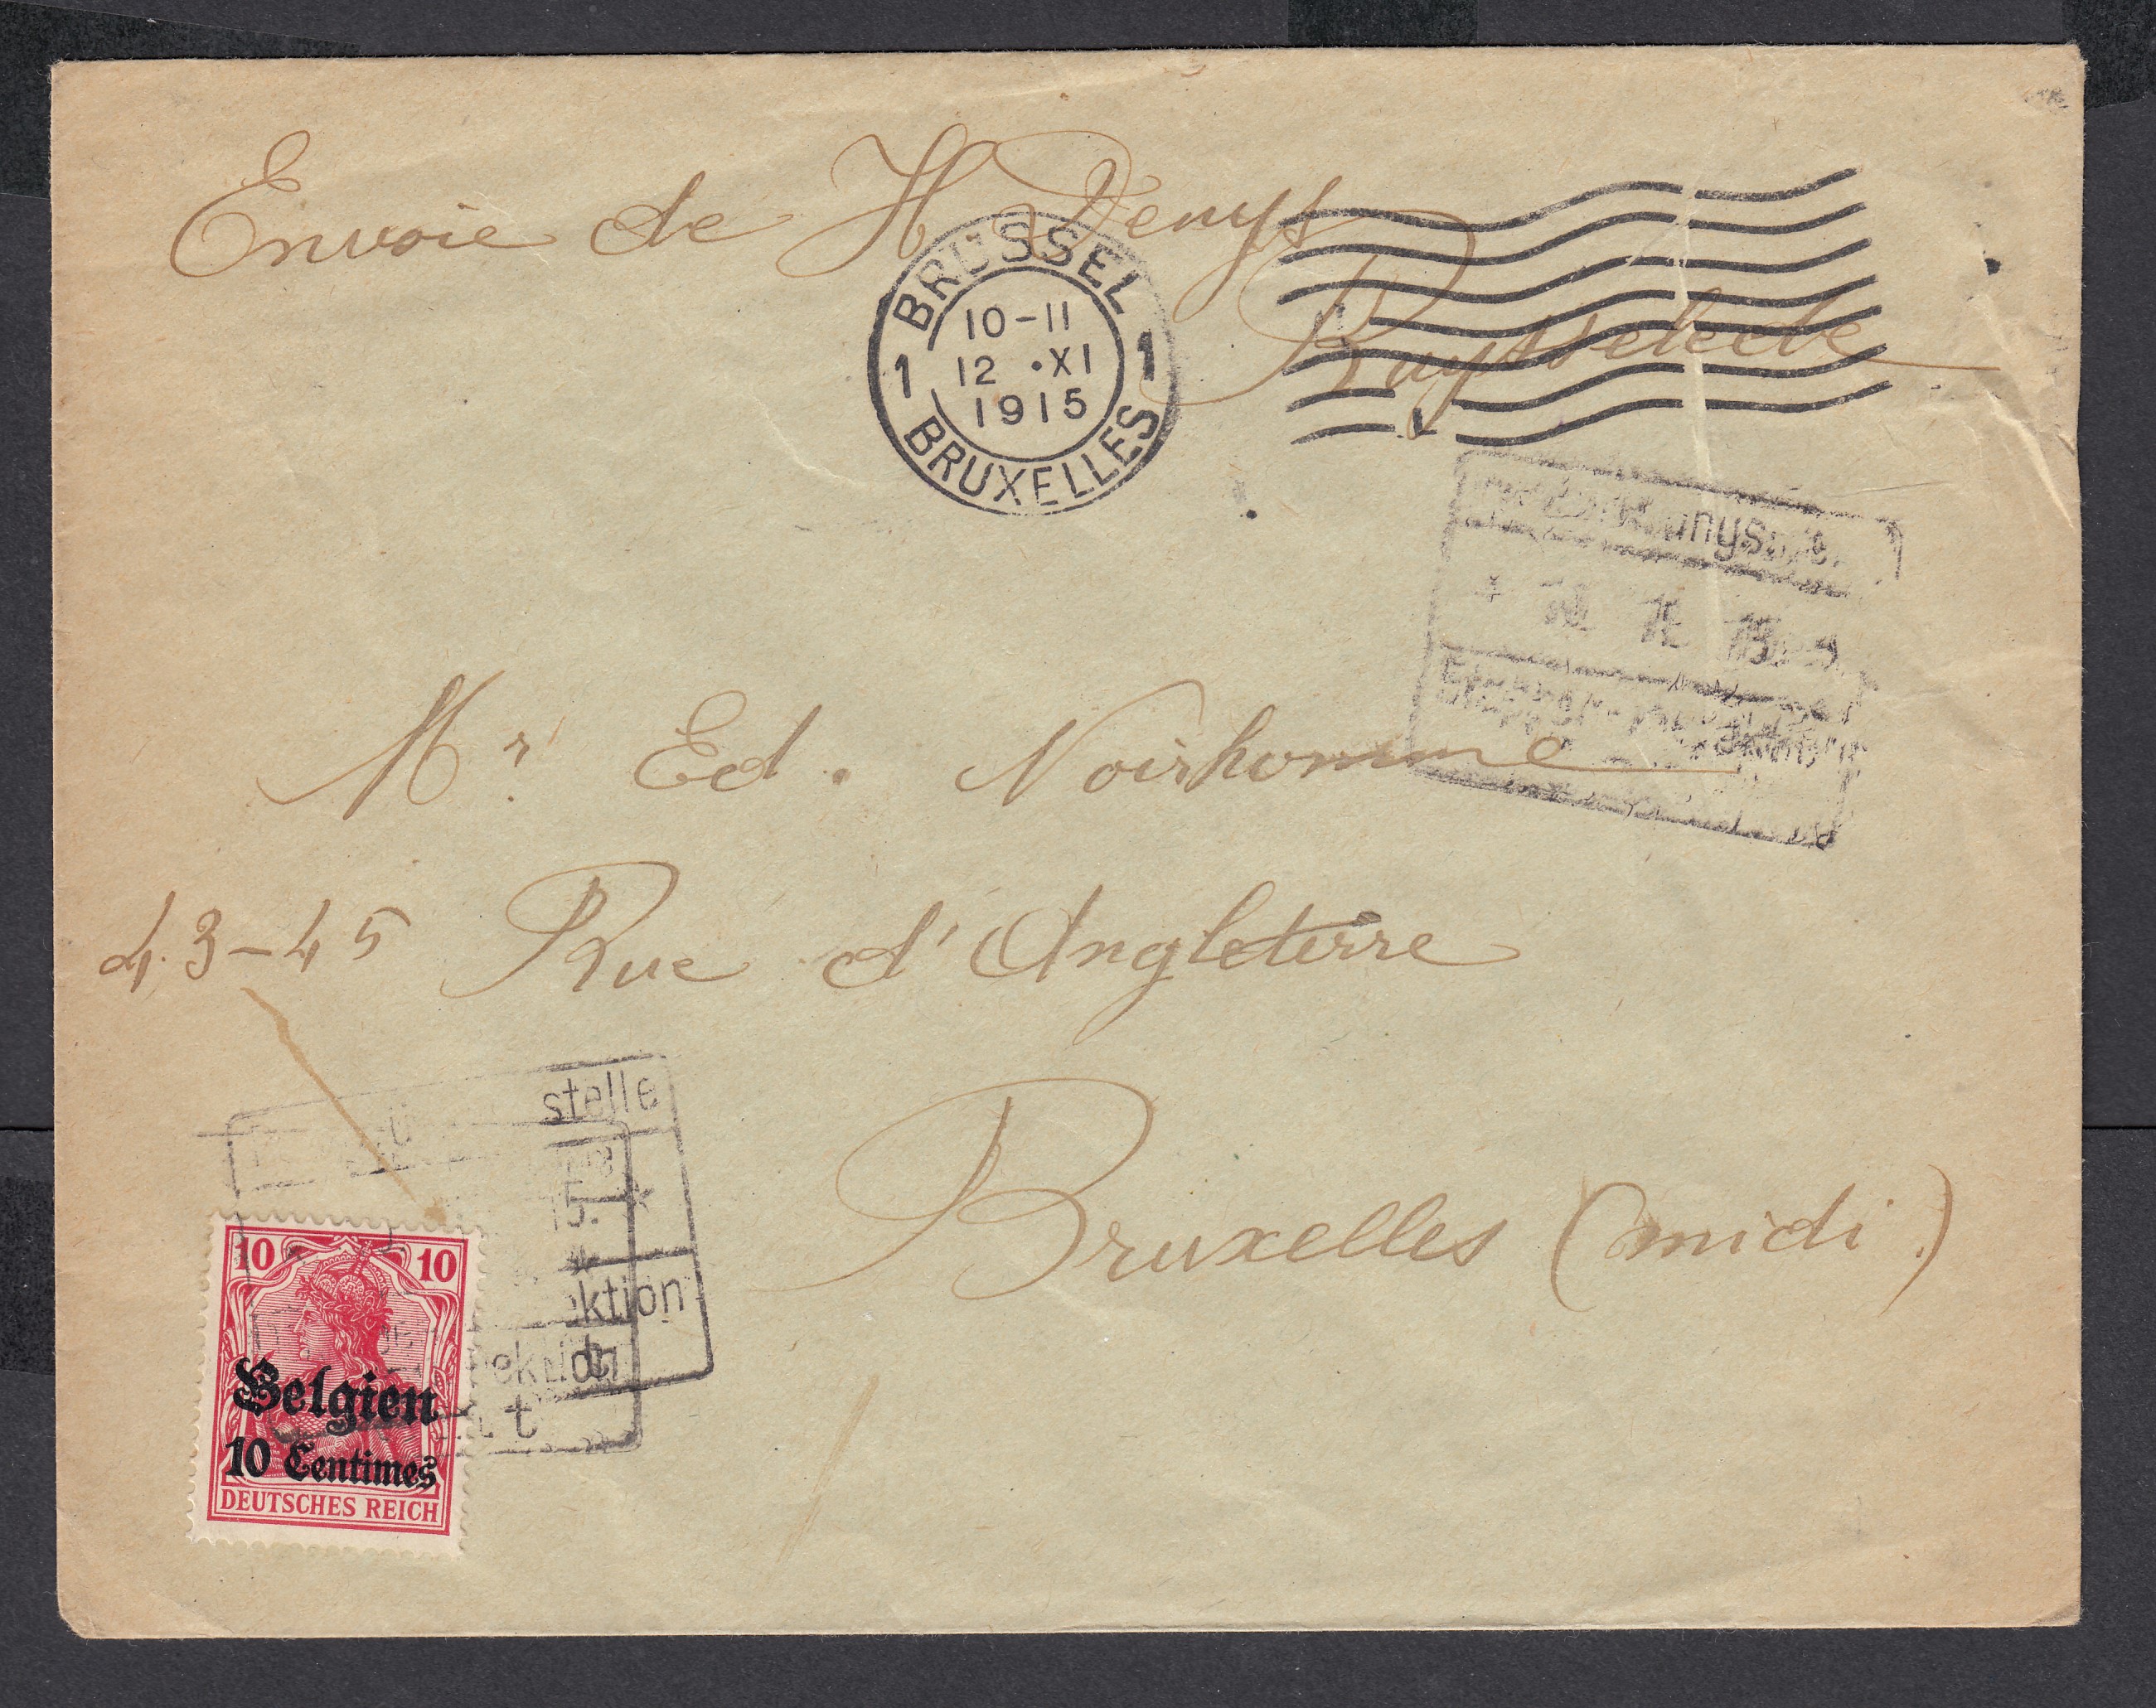 Envoie de H Denys
Ruysselede
BRÜSSEL
10-11
12 •XI
1 1
1915
BRUXELLES
Mr Ed. Noirhomme
43-45 Rue d'Angleterre
Bruxelles (midi.)
stelle
15. *
*
ektion
t
10 10
Belgien
10 Centimes
DEUTSCHES REICH